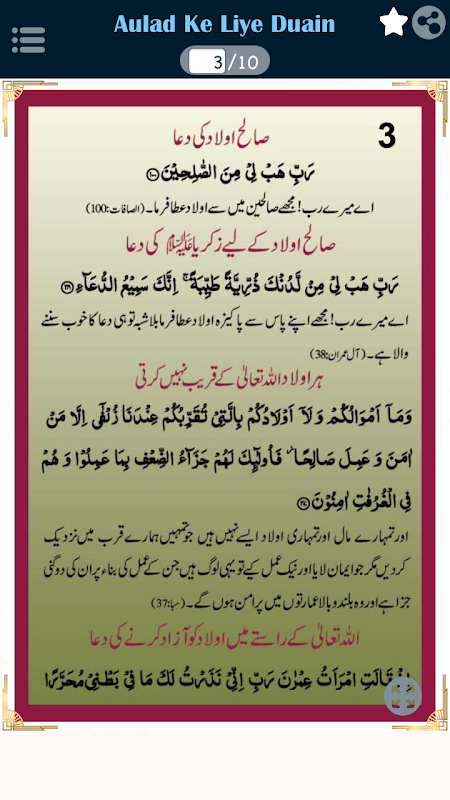 Aulad Ke Liye Duain
3/10
3
صالح اولاد کی دعا
رَبِّ هَبْ لِیْ مِنَ الصّٰلِحِیْنَ ۝۱۰۰
اے میرے رب! مجھے صالحین میں سے اولاد عطا فرما۔ (الصافات:100)
صالح اولاد کے لیے زکریا علیہ السلام کی دعا
رَبِّ هَبْ لِیْ مِنْ لَّدُنْكَ ذُرِّیَّةً طَیِّبَةً ۚ اِنَّكَ سَمِیْعُ الدُّعَآءِ ۝۳۸
اے میرے رب! مجھے اپنے پاس سے پاکیزہ اولاد عطا فرما بلاشبہ تو ہی دعا کا خوب سننے
والا ہے۔ (آل عمران:38)
ہر اولاد اللہ تعالیٰ کے قریب نہیں کرتی
وَمَاۤ اَمْوَالُكُمْ وَلَاۤ اَوْلَادُكُمْ بِالَّتِیْ تُقَرِّبُكُمْ عِنْدَنَا زُلْفٰۤی اِلَّا مَنْ
اٰمَنَ وَ عَمِلَ صَالِحًا ؗ فَاُولٰٓىِٕكَ لَهُمْ جَزَآءُ الضِّعْفِ بِمَا عَمِلُوْا وَ هُمْ
فِی الْغُرُفٰتِ اٰمِنُوْنَ ۝۳۷
اور تمہارے مال اور تمہاری اولاد ایسے نہیں ہیں جو تمہیں ہمارے قرب میں نزدیک
کر دیں مگر جو ایمان لایا اور نیک عمل کیے تو یہی لوگ ہیں جن کے عمل کی بناء پر ان کی دوگنی
جزا ہے اور وہ بلند و بالا عمارتوں میں پرامن ہوں گے۔ (سبا:37)
اللہ تعالیٰ کے راستے میں اولاد کو آزاد کرنے کی دعا
قَالَتِ امْرَاَتُ عِمْرٰنَ رَبِّ اِنِّیْ نَذَرْتُ لَكَ مَا فِیْ بَطْنِیْ مُحَرَّرًا